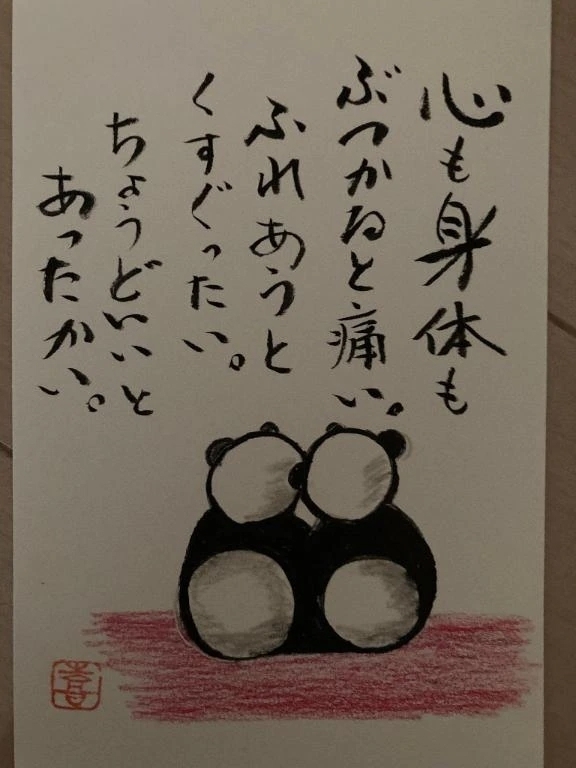 心も身体も
ぶつかると痛い。
ふれあうと
くすぐったい。
ちょうどいいと
あったかい。